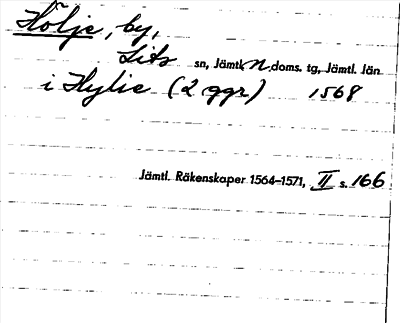 Hölje, by,
Lits sn, Jämtl. n. doms. tg, Jämtl. län
i Hylie (2 ggr) 1568
Jämtl. Räkenskaper 1564–1571, II s. 166